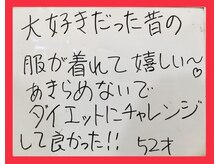 大好きだった昔の
服が着れて嬉しい〜♡
あきらめないで
ダイエットにチャレンジ
して良かった!! 52才